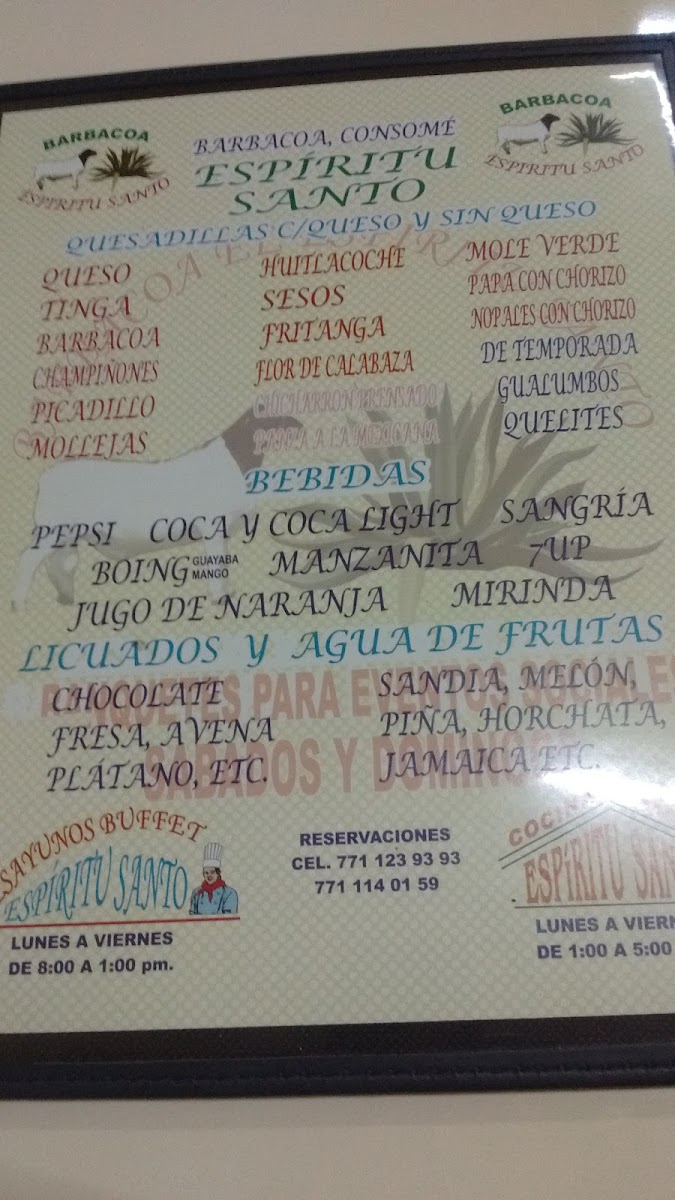 BARBACOA
ESPIRITU SANTO
BARBACOA, CONSOMÉ
ESPÍRITU
SANTO
BARBACOA
ESPIRITU SANTO
QUESADILLAS C/QUESO Y SIN QUESO
QUESO
TINGA
BARBACOA
CHAMPIÑONES
PICADILLO
MOLLEJAS
HUITLACOCHE
SESOS
FRITANGA
FLOR DE CALABAZA
CHICHARRON PRENSADO
PANZA A LA MEXICANA
MOLE VERDE
PAPA CON CHORIZO
NOPALES CON CHORIZO
DE TEMPORADA
GUALUMBOS
QUELITES
BEBIDAS
PEPSI COCA Y COCA LIGHT SANGRÍA
BOING GUAYABA MANGO MANZANITA 7UP
JUGO DE NARANJA MIRINDA
LICUADOS Y AGUA DE FRUTAS
CHOCOLATE
FRESA, AVENA
PLÁTANO, ETC.
SANDIA, MELÓN,
PIÑA, HORCHATA,
JAMAICA ETC.
PARA
SABADOS Y
SAYUNOS BUFFET
ESPÍRITU SANTO
LUNES A VIERNES
DE 8:00 A 1:00 pm.
RESERVACIONES
CEL. 771 123 93 93
771 114 01 59
COCINA
ESPÍRITU SAN
LUNES A VIERN
DE 1:00 A 5:00